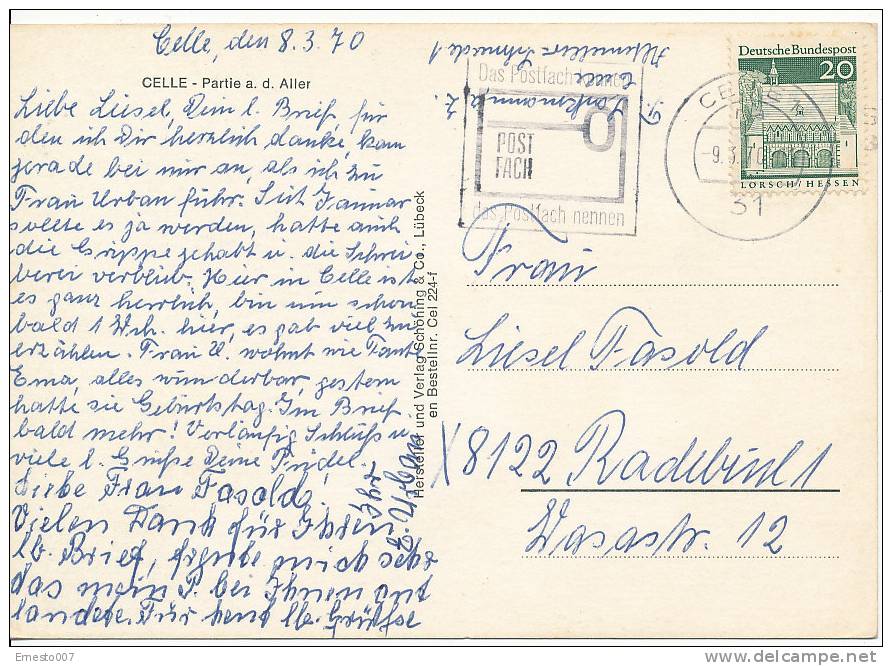 Celle, den 8.3.70
CELLE - Partie a. d. Aller
Liebe Liesel, Dein l. Brief, für
den ich Dir herzlich danke, kam
gerade bei mir an, als ich zu
Frau Urban fuhr. Seit Januar
sollte es ja werden, hatte auch
die Grippe gehabt u. die Schrei
berei verblieb. Hier in Celle ist
es ganz herrlich, bin nun schon
bald 1 Wch. hier, es gab viel zu
erzählen. Frau U. wohnt wie Tante
Ema, alles wunderbar, gestern
hatte sie Geburtstag. Im Brief
bald mehr! Vorläufig Schluß u.
viele l. Grüße Deine
Liebe Frau Fasold,
Vielen Dank für Ihren
lb. Brief, freute mich sehr
das mein P. bei Ihnen ant
landete. Für heut lb. Grüße
Ihre
E. Urban
Hersteller und Verlag Schöning & Co., Lübeck
en Bestellnr. Cel 224-f
Celle
Das Postfach
POST
FACH
das Postfach nennen
CELLE 1
-9.3.70
31
Deutsche Bundespost
20
LORSCH/HESSEN
Frau
Liesel Fasold
8122 Radebeul 1
Wasastr. 12
Ernesto007
www.delcampe.net